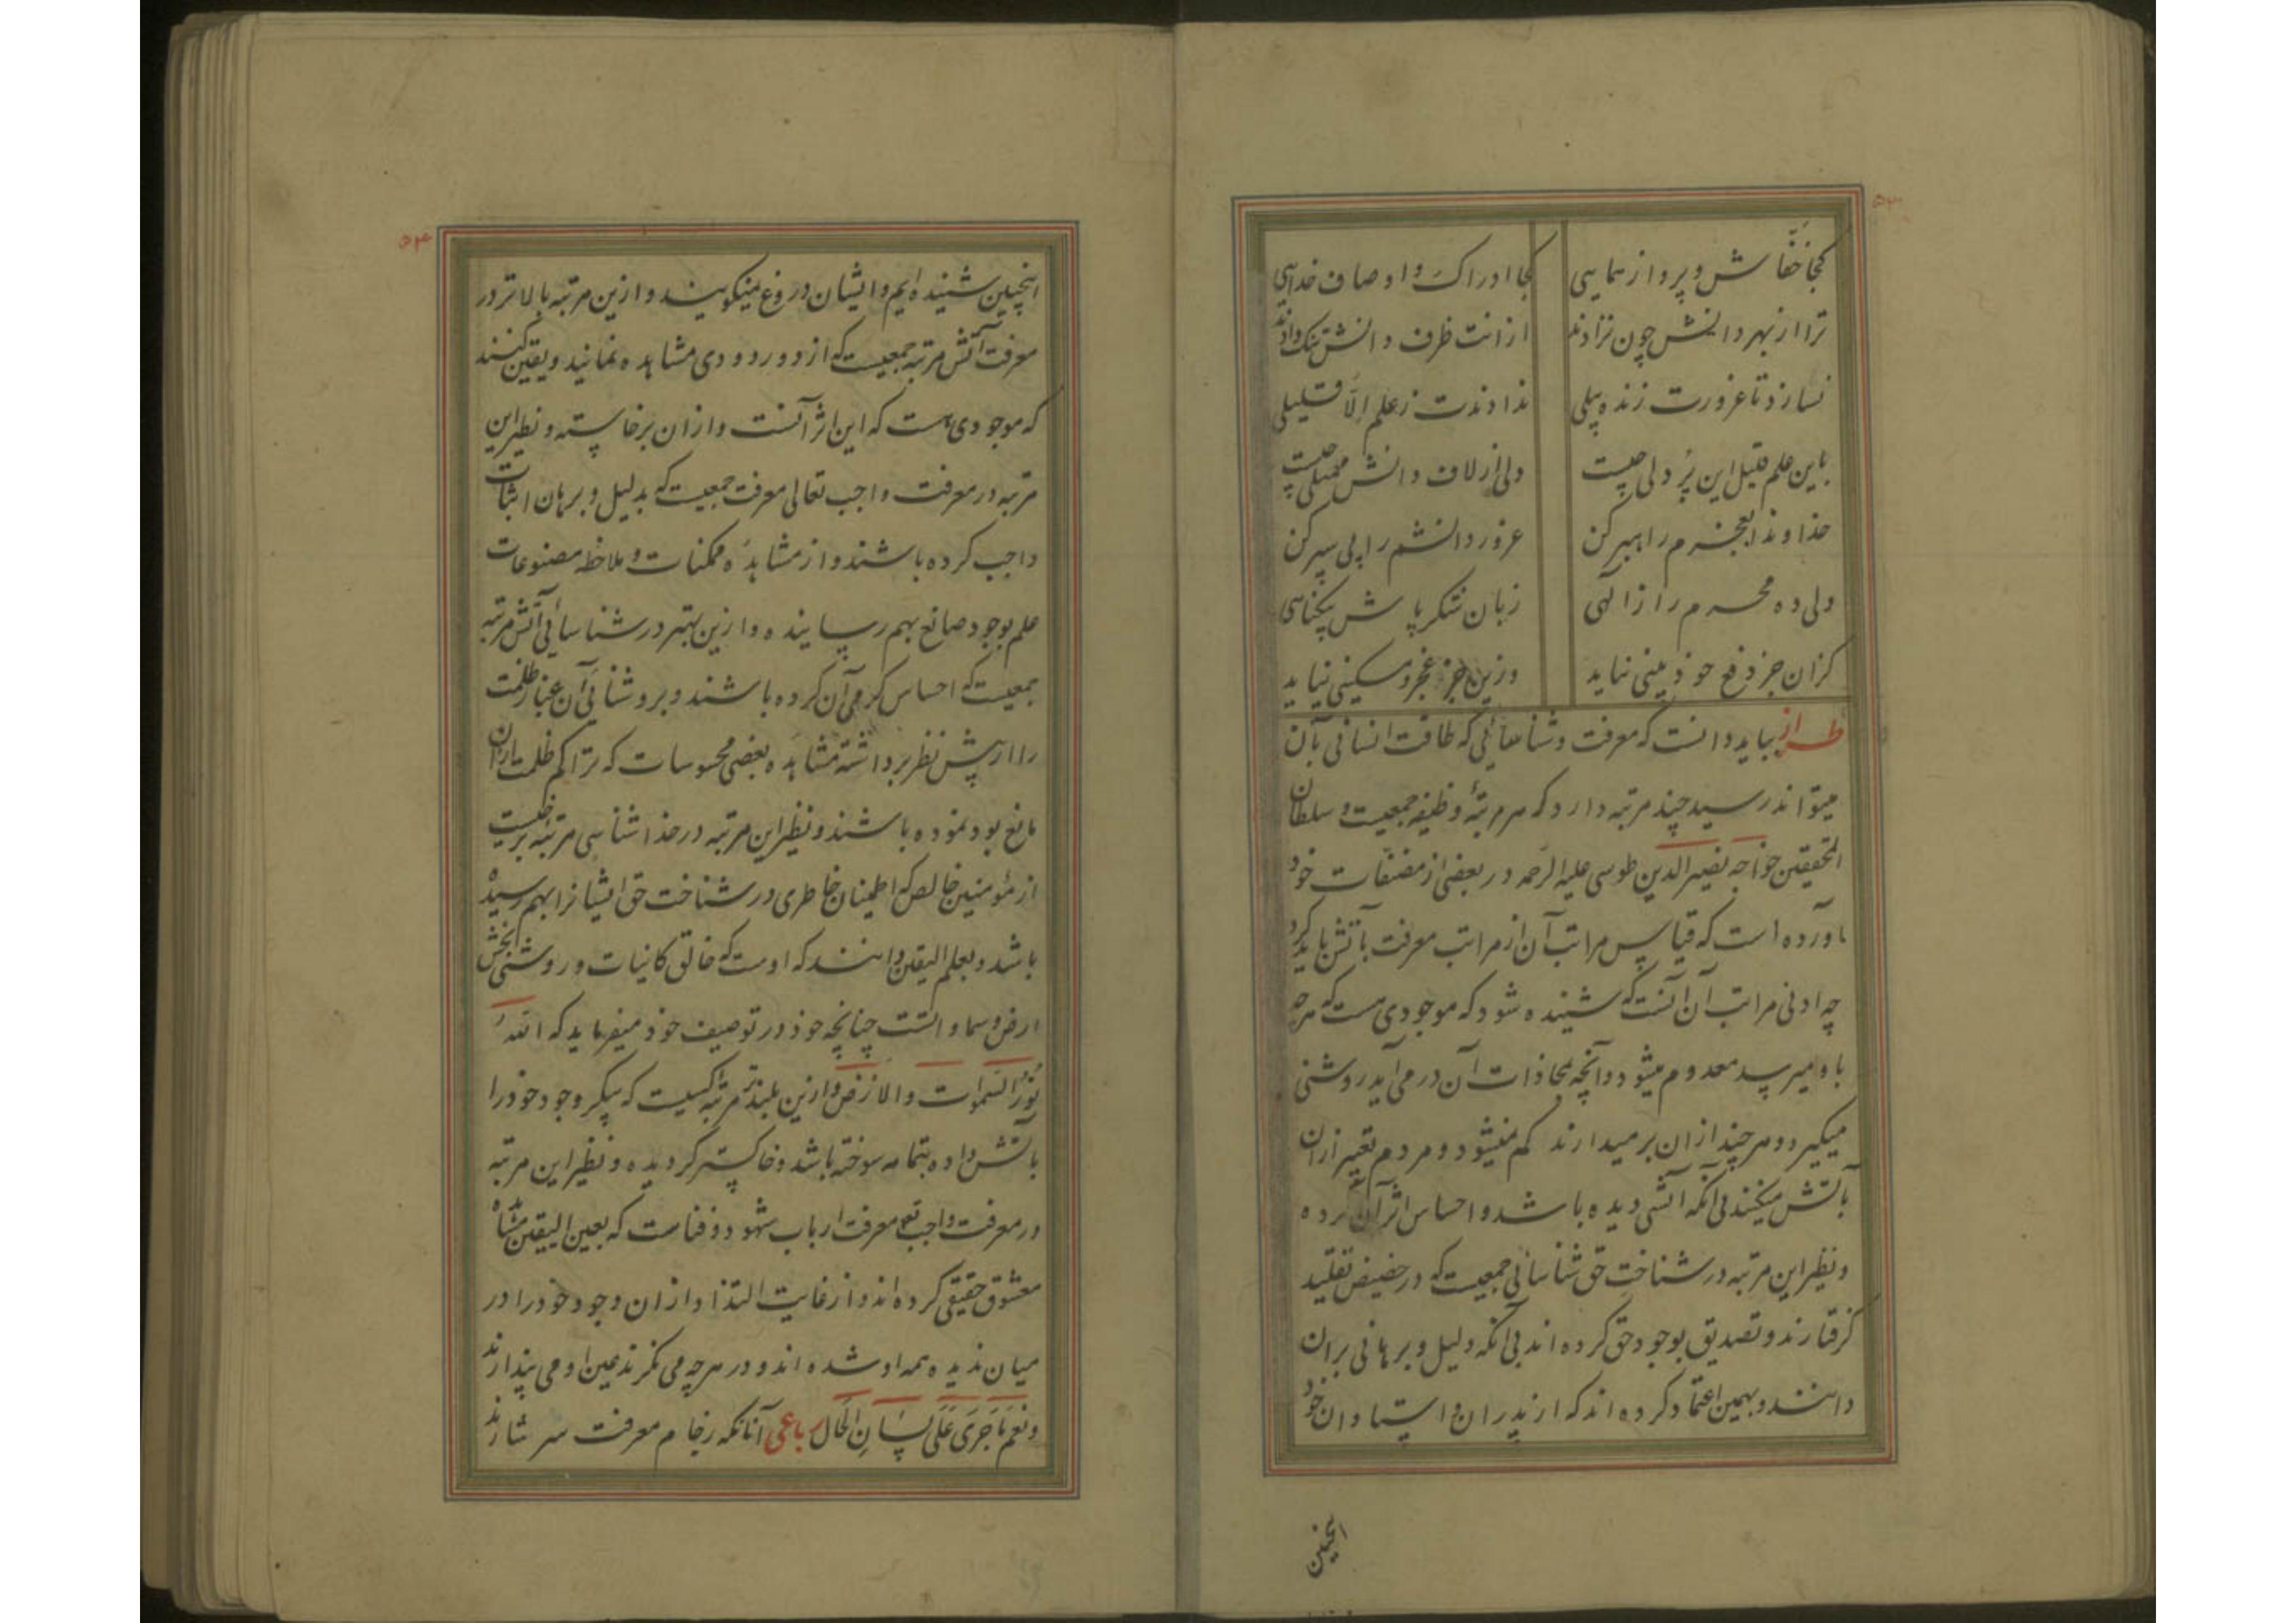 ۵۳
کجا خفّاش و پرواز همایی کجا ادراک و اوصاف خدایی
ترا از بهر دانش چون نزادند ازانت ظرف دانش تنک دادند
نسازد تا غرورت زنده پیلی ندادندت ز علم الّا قلیلی
باین علم قلیل این پُر دلی چیست ولی از لاف دانش ممتلی چیست
خداوندا بعجزم راهبر کن غرور دانشم را پی سپر کن
ولی ده محرم راز الهی زبان شکر پاش بیکناهی
کزان جز دفع خودبینی نیاید وزین جز عجز و مسکینی نیاید
طراز بباید دانست که معرفت و شناسائی که طاقت انسانی بآن
میتواند رسید چند مرتبه دارد که هر مرتبهٔ وظیفه جمعیست و سلطان
المحققین خواجه نصیر الدین طوسی علیه الرحمه در بعضی از مصنفات خود
آورده است که قیاس مراتب آن از مراتب معرفت بآتش باید کرد
چه ادنی مراتب آن آنست که شنیده شود که موجودی هست که هر چه
باو میرسد معدوم میشود و آنچه بمحاذات آن در می آید روشنی
میکیرد و هر چند ازان بر میدارند کم نمیشود و مردم تعبیر ازان
بآتش میکنند بی آنکه آتشی دیده باشد و احساس اثر آن کرده
و نظیر این مرتبه در شناخت حق شناسائی جمعیست که در حضیض تقلید
کرفتارند و تصدیق بوجود حق کرده اند بی آنکه دلیل و برهانی بران
دانند و بهمین اعتماد کرده اند که از پدران و استادان خود
اینچنین
۵۴
اینچنین شنیده ایم و ایشان دروغ نمیکویند و ازین مرتبه بالاتر در
معرفت آتش مرتبه جمعیست که از دور دودی مشاهده نمایند و یقین کنند
که موجودی هست که این اثر آنست و ازان برخاسته و نظیر این
مرتبه در معرفت واجب تعالی معرفت جمعیست که بدلیل و برهان اثبات
واجب کرده باشند و از مشاهدهٔ ممکنات و ملاحظه مصنوعات
علم بوجود صانع بهم رسانیده و ازین بهتر در شناسائی آتش مرتبه
جمعیست که احساس کرمی آن کرده باشند و بروشنائی آن غبار ظلمت
را از پیش نظر برداشته مشاهده بعضی محسوسات که تراکم ظلمت ازان
مانع بود نموده باشند و نظیر این مرتبه در خداشناسی مرتبه برخیست
از مؤمنین خالص که اطمینان خاطری در شناخت حق ایشانرا بهم رسیده
باشد و بعلم الیقین دانند که اوست که خالق کاینات و روشنی بخش
ارض و سماوات است چنانچه خود در توصیف خود میفرماید که اللهُ
نُورُ السَّموات والارْض و ازین بلندتر مرتبه کسیست که پیکر وجود خود را
بآتش داده بتمامه سوخته باشد و خاکستر کردیده و نظیر این مرتبه
در معرفت واجب تع معرفت ارباب شهود و فناست که بعین الیقین مشاهده
معشوق حقیقی کرده اند و از غایت التذاذ ازان وجود خود را در
میان ندیده همه او شده اند و در هر چه می نکرند عین او می پندارند
و نعم ما جَری عَلی لسَانِ الحَال رباعی آنانکه ز جام معرفت سرشارند